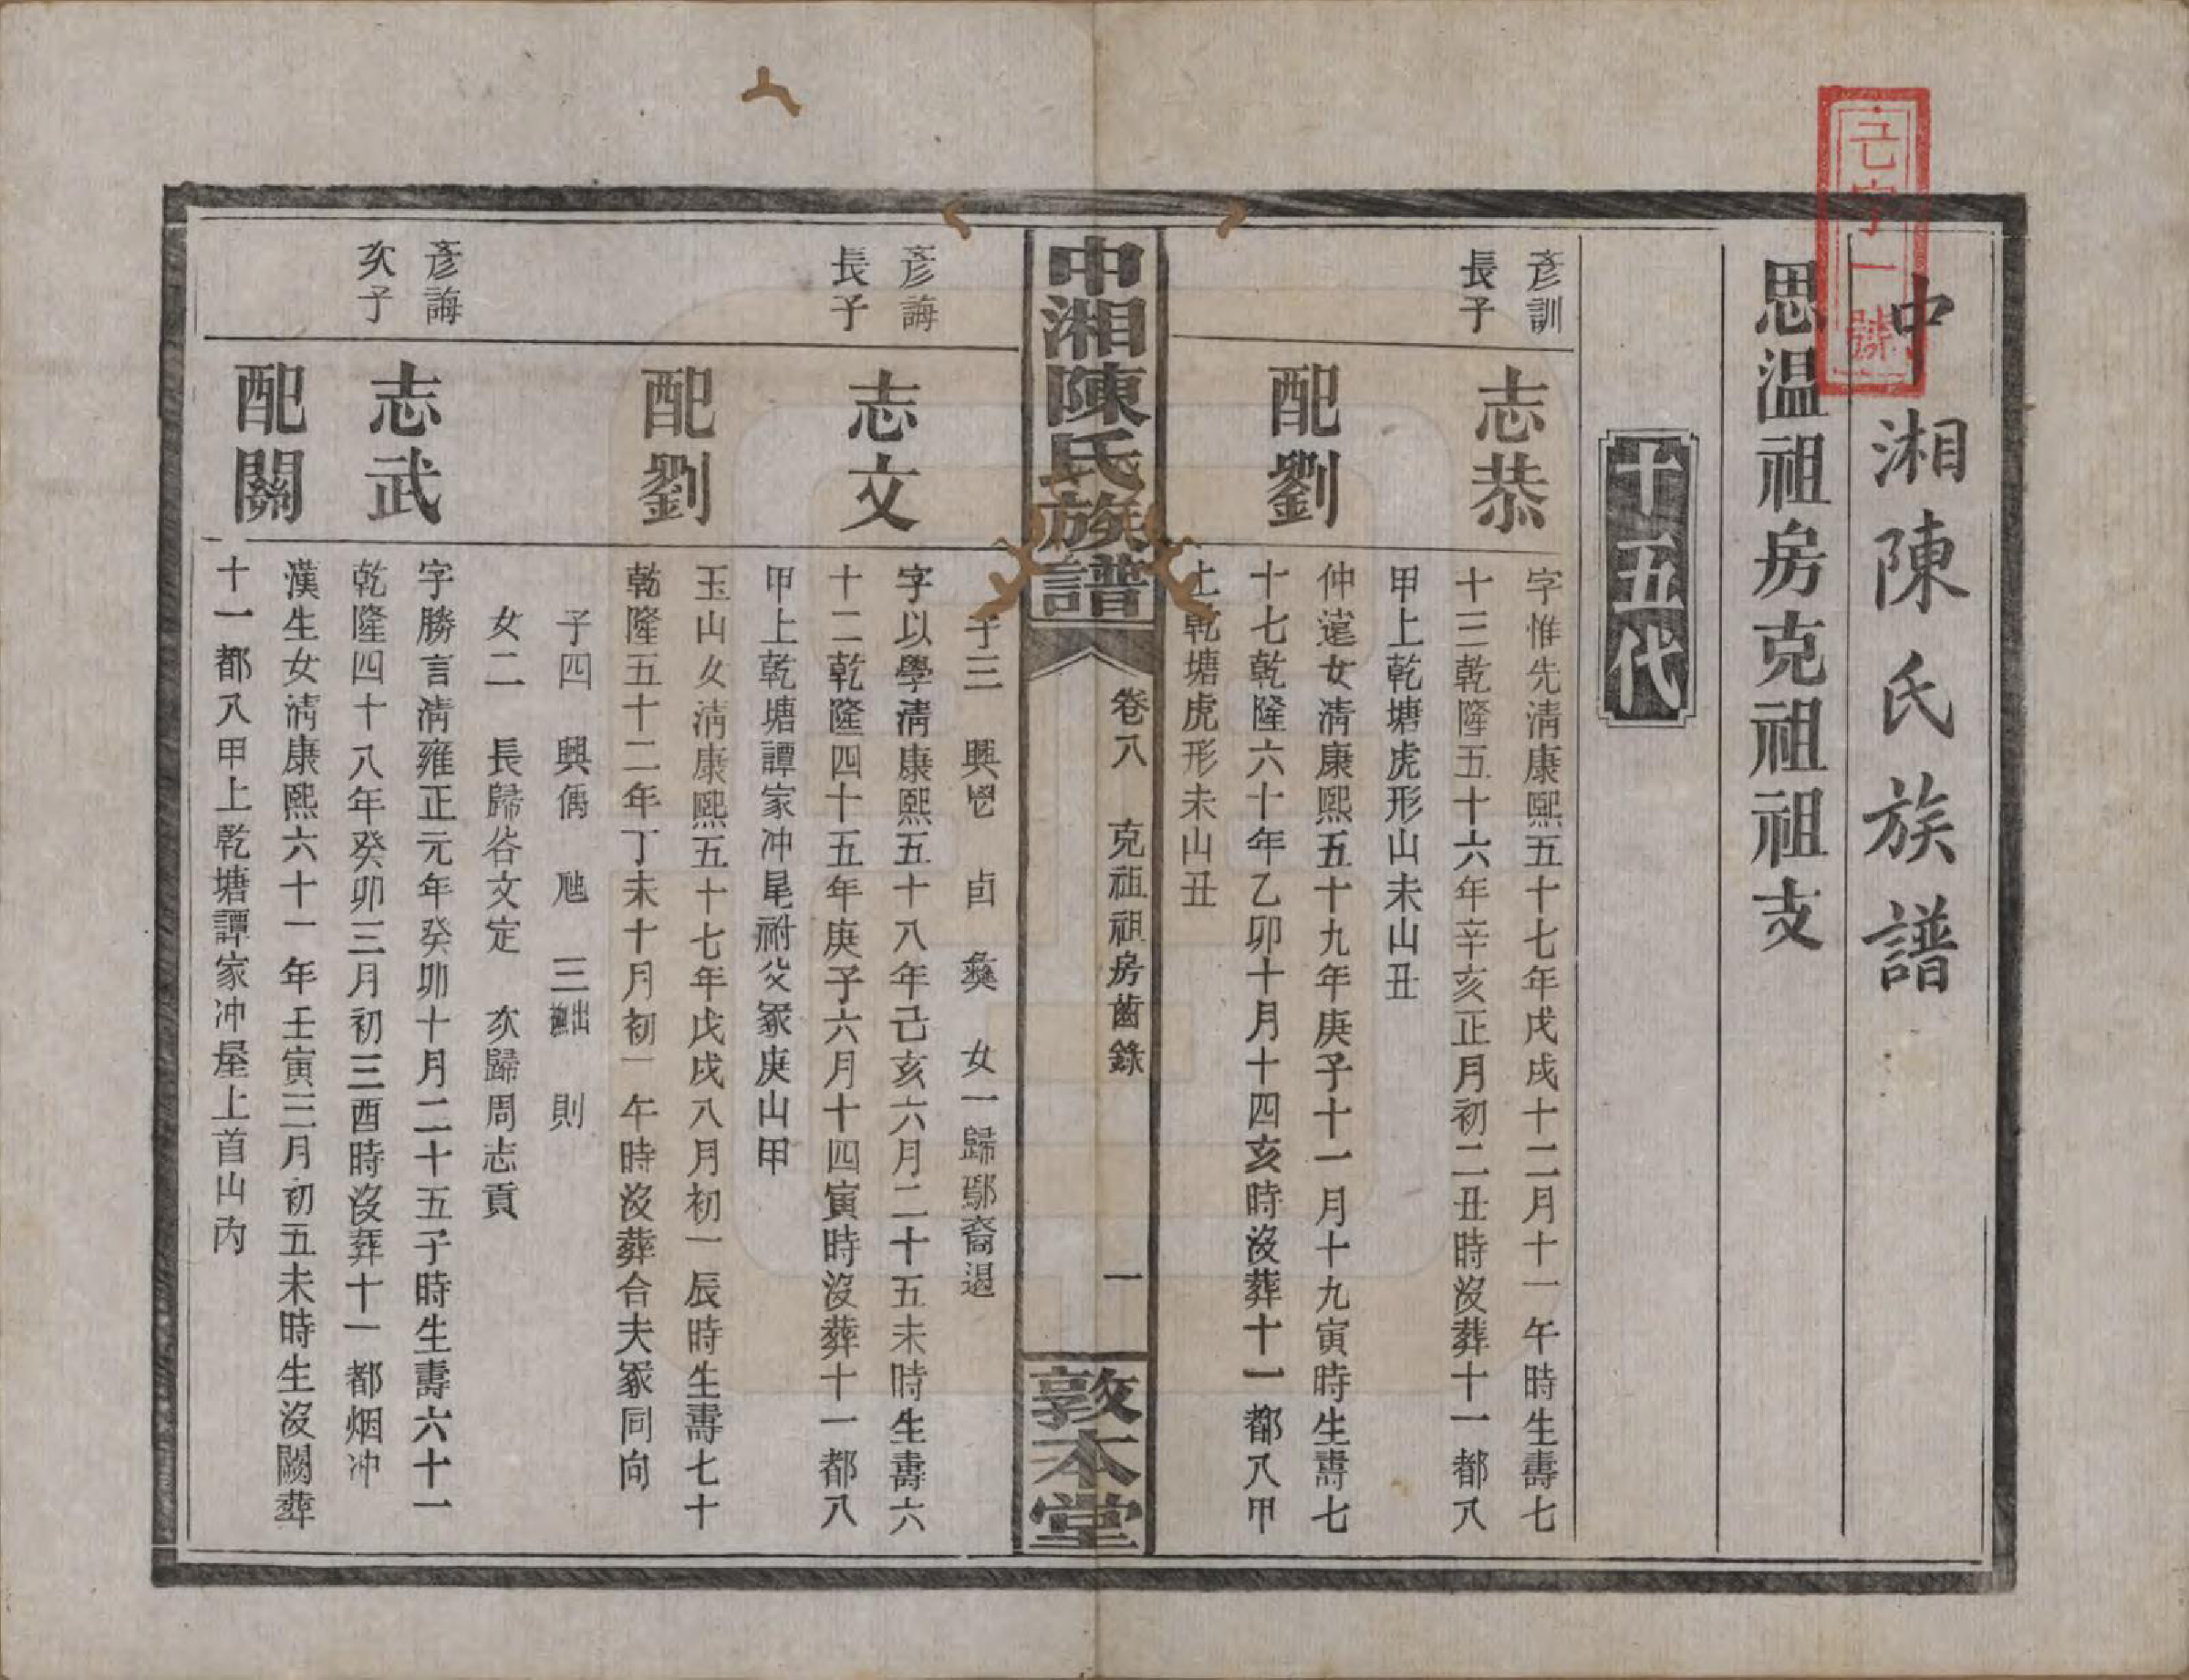 中湘陳氏族譜
思温祖房克祖祖支
十五代
彥訓
長子
志恭
字惟先淸康熙五十七年戊戌十二月十一午時生壽七
十三乾隆五十六年辛亥正月初二丑時沒葬十一都八
甲上乾塘虎形山未山丑
配劉
仲遠女淸康熙五十九年庚子十一月十九寅時生壽七
十七乾隆六十年乙卯十月十四亥時沒葬十一都八甲
上乾塘虎形未山丑
中湘陳氏族譜
卷八 克祖祖房齒錄 一
敦本堂
子三 興鬯 卣 彝 女一歸鄢裔遏
彥誨
長子
志文
字以學淸康熙五十八年己亥六月二十五未時生壽六
十二乾隆四十五年庚子六月十四寅時沒葬十一都八
甲上乾塘譚家冲尾祔父冢庚山甲
配劉
玉山女淸康熙五十七年戊戌八月初一辰時生壽七十
乾隆五十二年丁未十月初一午時沒葬合夫冢同向
子四 興偶 虺 三出撫 則
女二 長歸谷文定 次歸周志貢
彥誨
次子
志武
字勝言淸雍正元年癸卯十月二十五子時生壽六十一
乾隆四十八年癸卯三月初三酉時沒葬十一都烟冲
配關
漢生女淸康熙六十一年壬寅三月初五未時生沒闕葬
十一都八甲上乾塘譚家冲屋上首山內
字一號